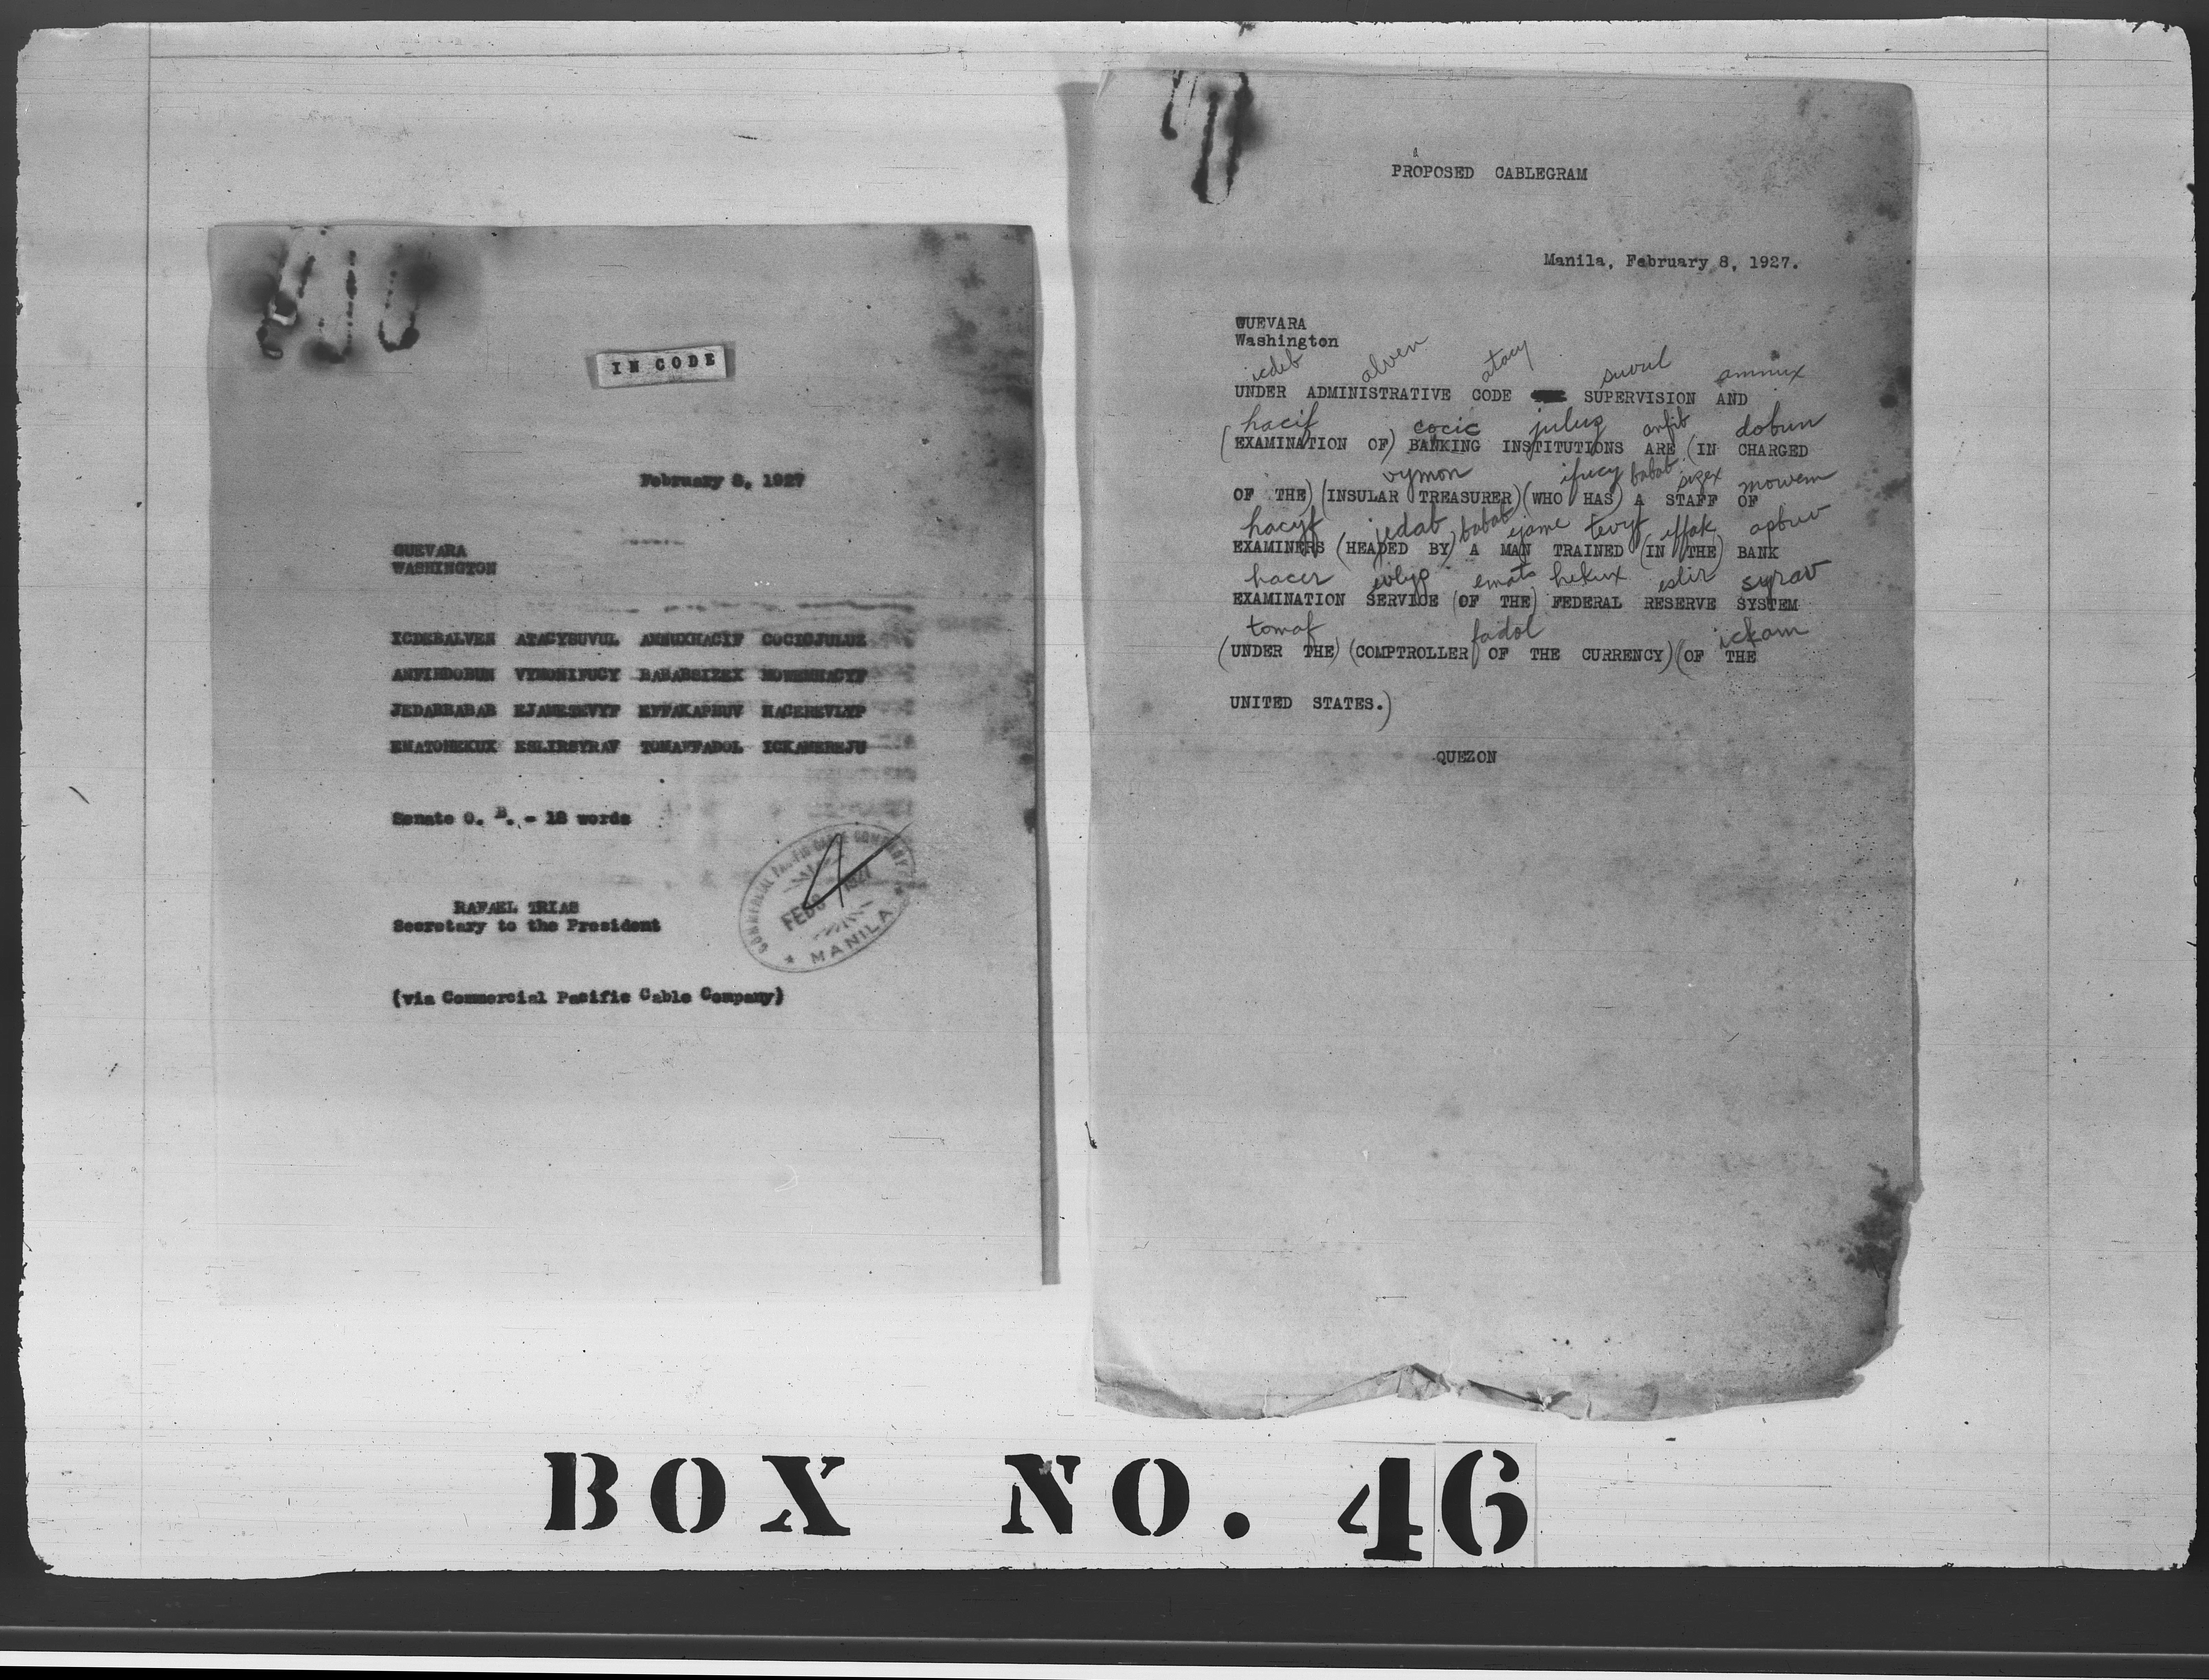 IN CODE
February 8, 1927
GUEVARA
WASHINGTON
ICDEBALVEN ATACYSUVUL AMMUXHACIF COCICJULUZ
ANFIBDOBUN VYMONIFUCY BABABSIZEX MOWEMHACYF
JEDABBABAB EJAMESEVYF EFFAKAPBUV HACEREVLYP
EMATOHEKUX ESLIRSYRAV TOMAFFADOL ICKAMEREJU
Senate O. B. - 18 words
COMMERCIAL PACIFIC CABLE COMPANY
FEB 8 1927
MANILA
RAFAEL TRIAS
Secretary to the President
(via Commercial Pacific Cable Company)
PROPOSED CABLEGRAM
Manila, February 8, 1927.
GUEVARA
Washington
icdeb alven atacy suvul ammux
UNDER ADMINISTRATIVE CODE SUPERVISION AND
hacif cocic juluz anfib dobun
(EXAMINATION OF) BANKING INSTITUTIONS ARE (IN CHARGED
vymon ifucy babab sizex mowem
OF THE) (INSULAR TREASURER) (WHO HAS) A STAFF OF
hacyf jedab babab ejame tevyf effak apbuv
EXAMINERS (HEADED BY) A MAN TRAINED (IN THE) BANK
hacer evlyp emato hekux eslir syrav
EXAMINATION SERVICE (OF THE) FEDERAL RESERVE SYSTEM
tomaf fadol ickam
(UNDER THE) (COMPTROLLER OF THE CURRENCY) (OF THE
UNITED STATES.)
QUEZON
BOX NO. 46